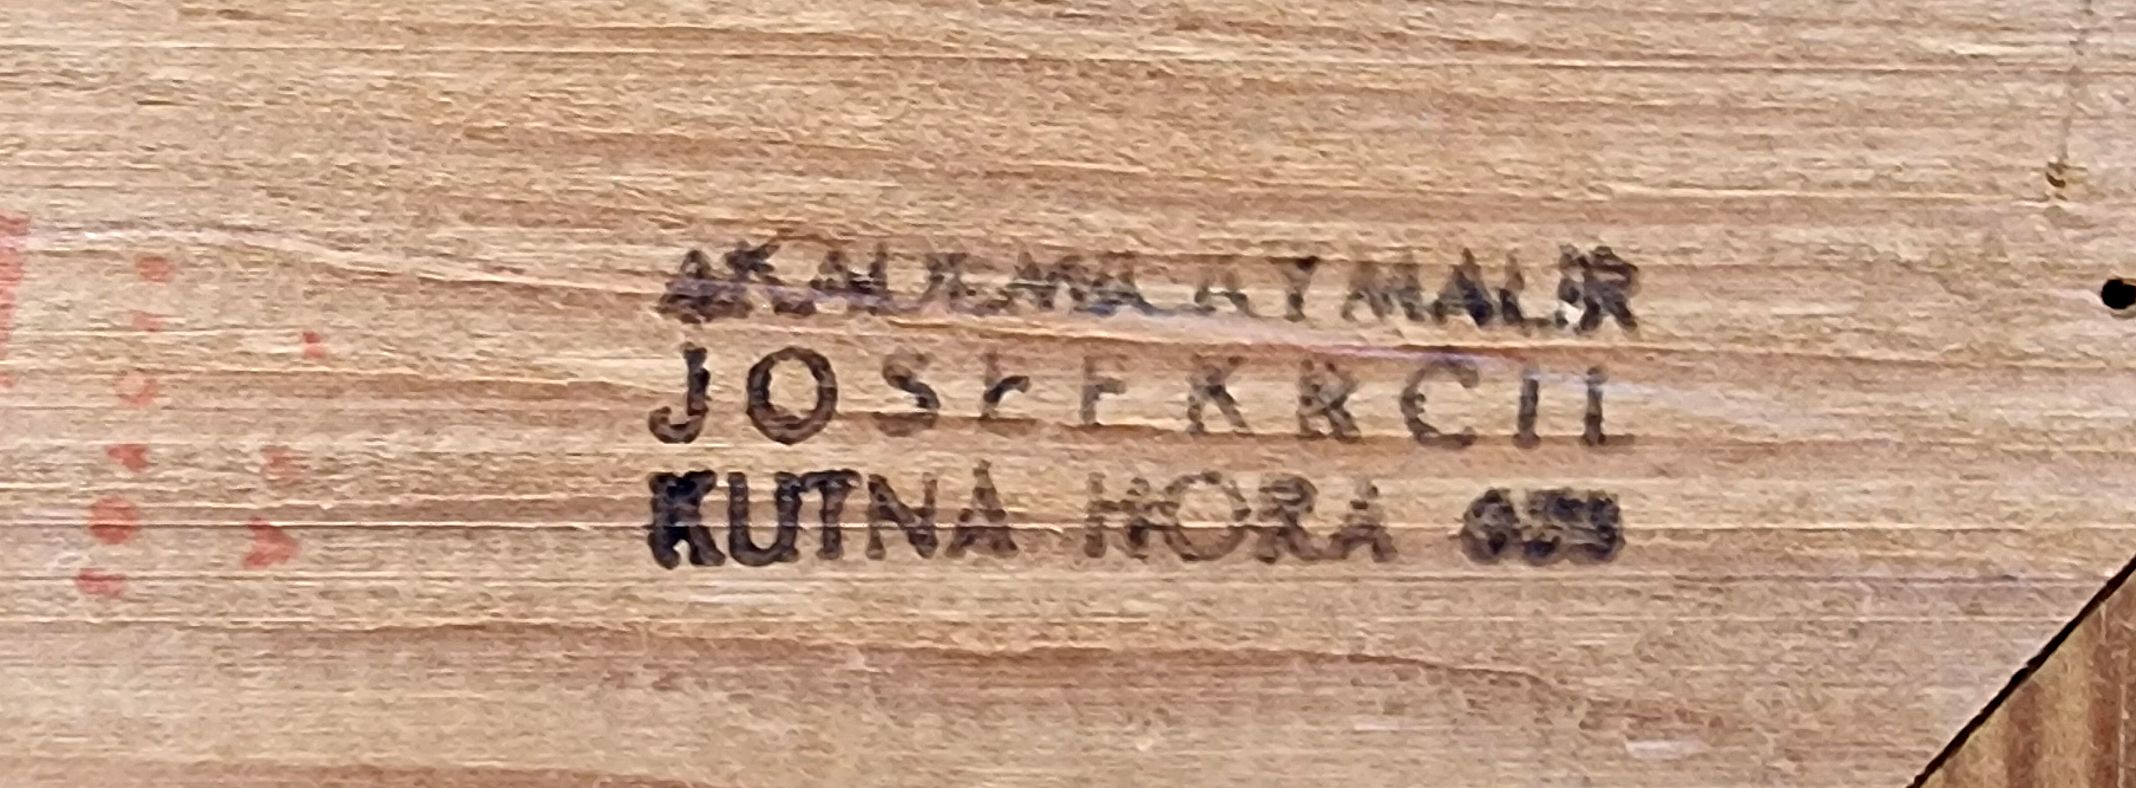 AKADEMICKÝ MALÍŘ
JOSEF KRČIL
KUTNÁ HORA